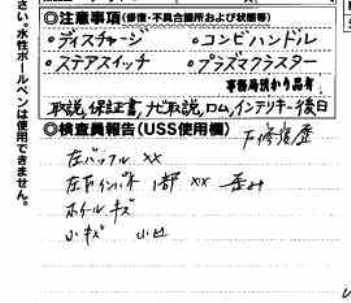 さい。水性ボールペンは使用できません。
◎注意事項(修復・不具合箇所および状態等)
・ディスチャージ ・コンビハンドル
・ステアスイッチ ・プラズマクラスター
事務局預かり品有
取説,保証書,ナビ取説,ロム,インテリキー後日
◎検査員報告(USS使用欄)
下修復歴
左バッフル XX
左 インパネ 1部 XX 歪み
ホイールキズ
小キズ 小凹